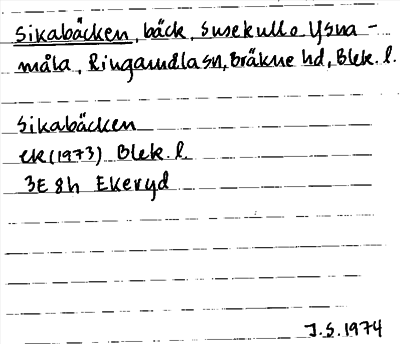 Sikabäcken, bäck, Susekulle Ysna-
måla, Ringamåla sn, Bräkne hd, Blek. l.
Sikabäcken
ek (1973) Blek. l.
3E 8h Ekeryd
J.S. 1974